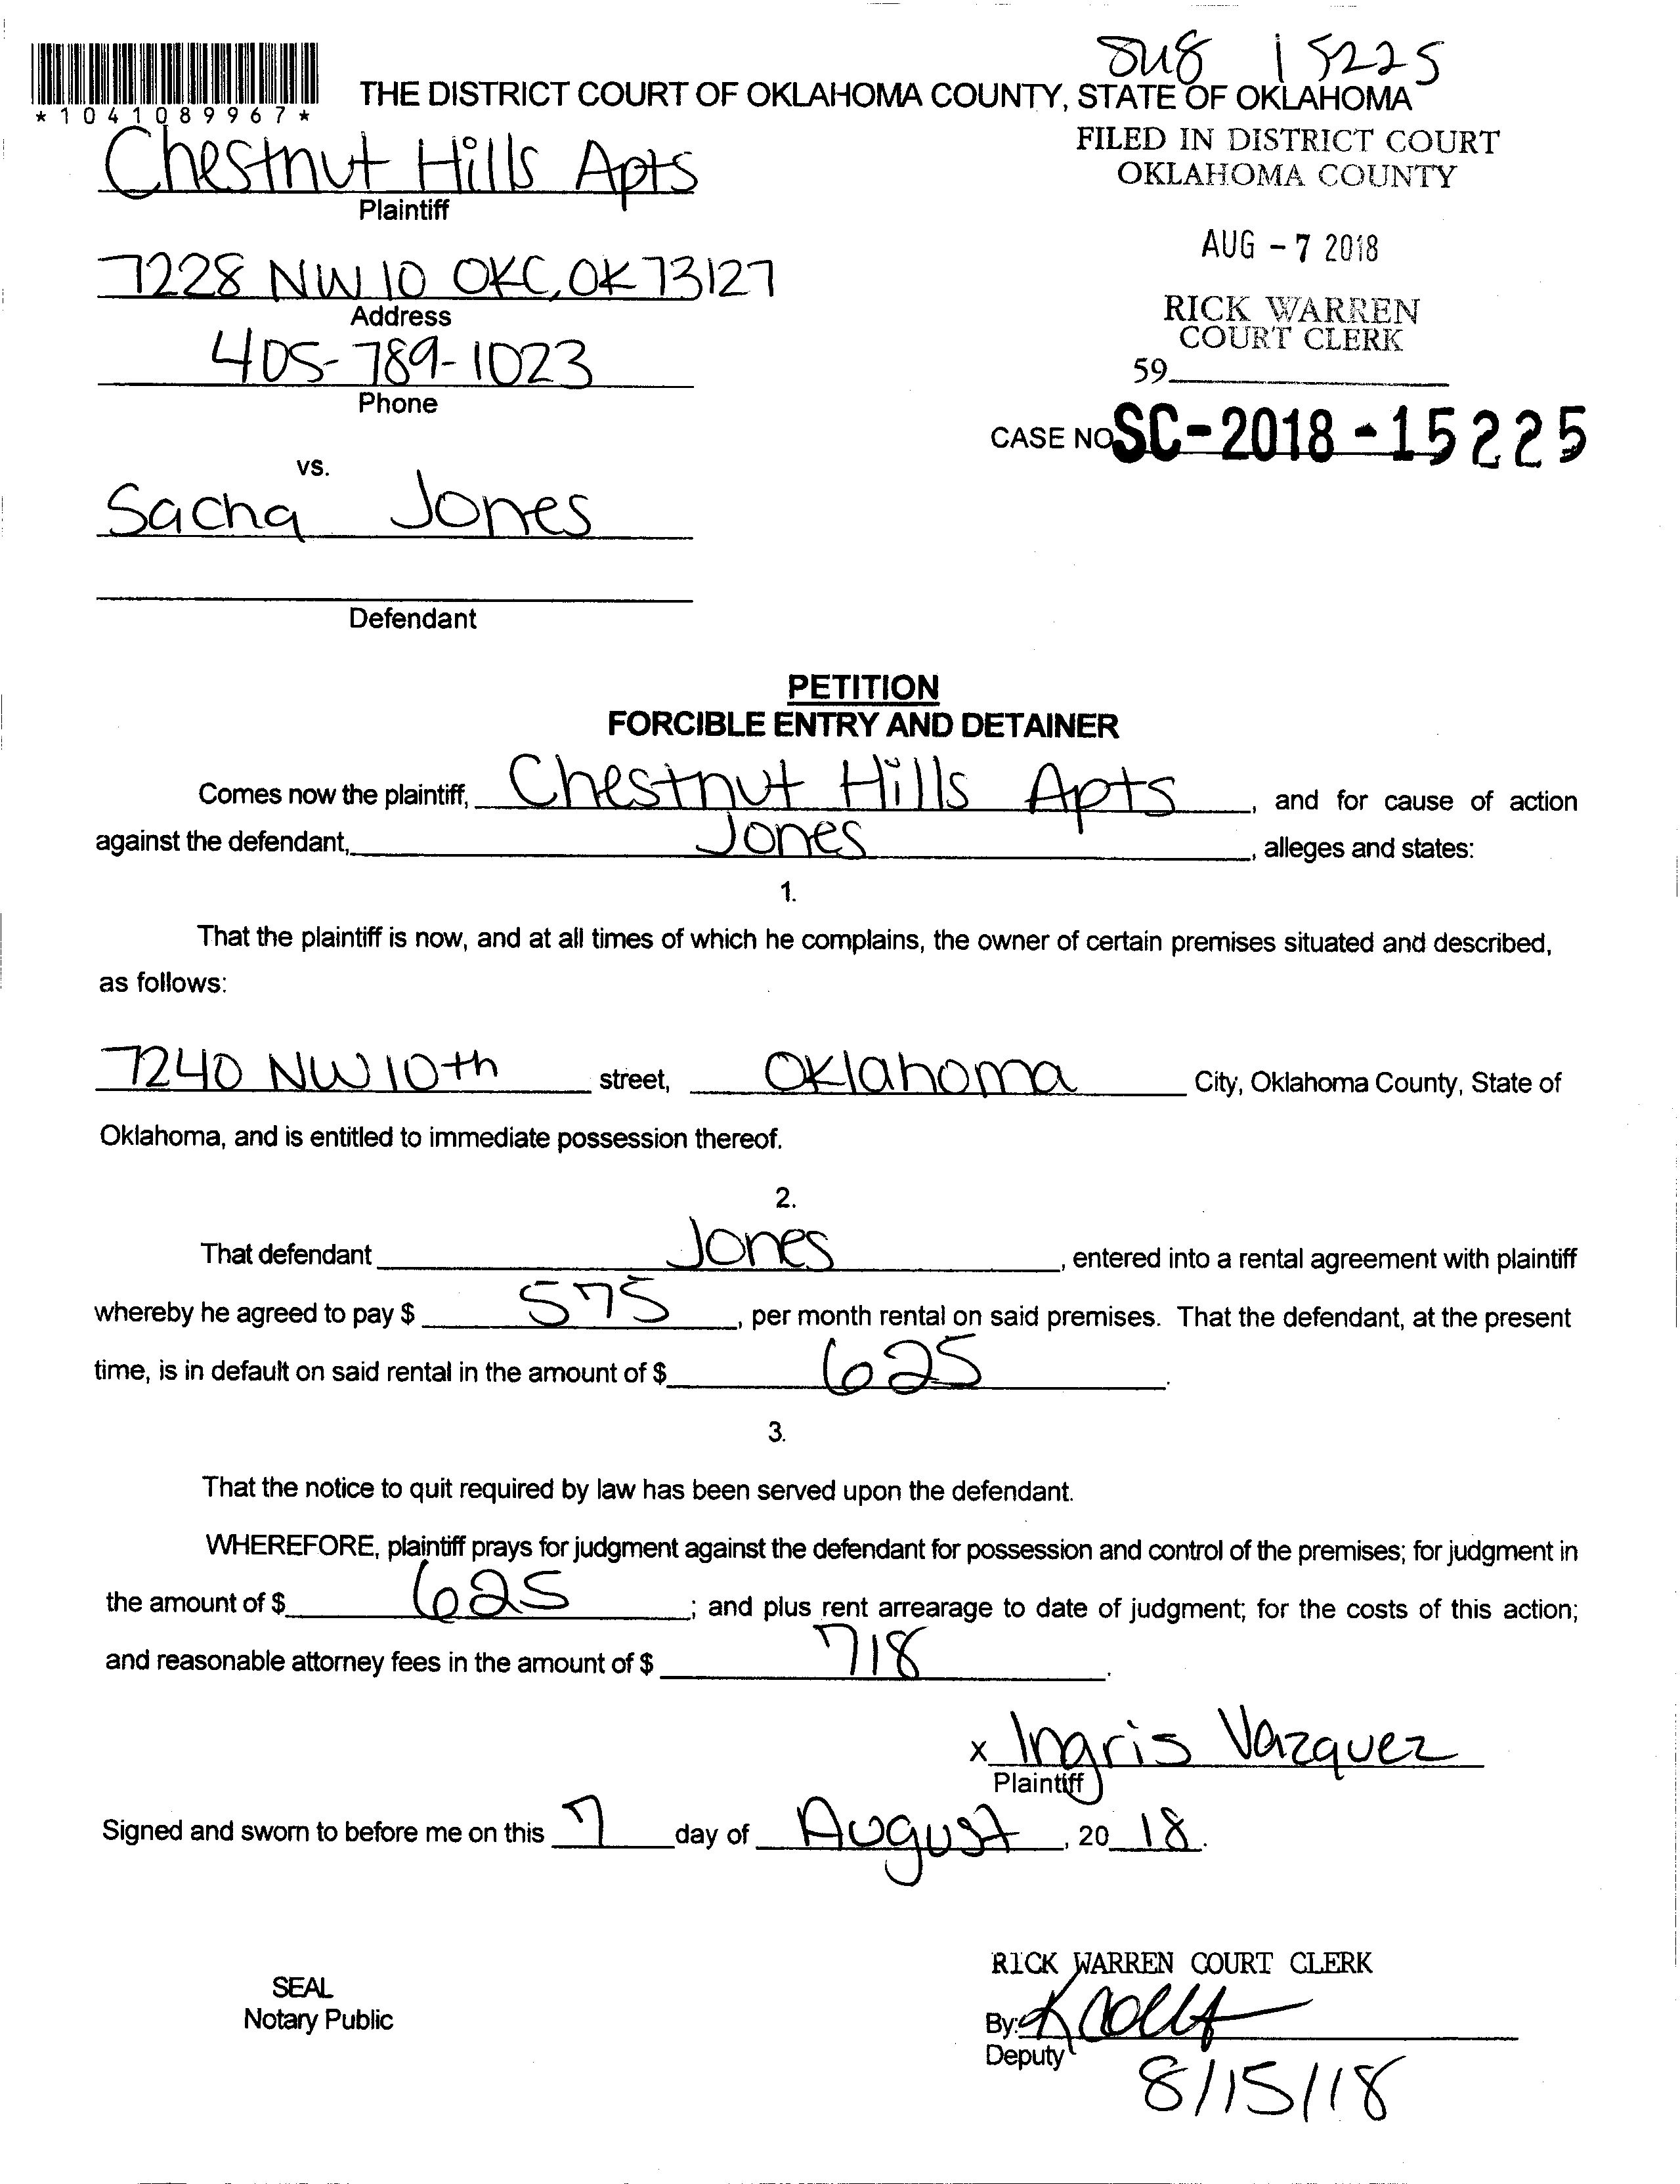 SM8 15225
*1041089967*
THE DISTRICT COURT OF OKLAHOMA COUNTY, STATE OF OKLAHOMA
FILED IN DISTRICT COURT
OKLAHOMA COUNTY
Chestnut Hills Apts
Plaintiff
AUG - 7 2018
7228 NW 10 OKC, OK 73127
Address
RICK WARREN
COURT CLERK
405-789-1023
Phone
59
CASE NO SC-2018-15225
vs.
Sacha Jones
Defendant
PETITION
FORCIBLE ENTRY AND DETAINER
Comes now the plaintiff, Chestnut Hills Apts, and for cause of action
against the defendant, Jones, alleges and states:
1.
That the plaintiff is now, and at all times of which he complains, the owner of certain premises situated and described,
as follows:
7240 NW 10th street, Oklahoma City, Oklahoma County, State of
Oklahoma, and is entitled to immediate possession thereof.
2.
That defendant Jones, entered into a rental agreement with plaintiff
whereby he agreed to pay $ 575, per month rental on said premises. That the defendant, at the present
time, is in default on said rental in the amount of $ 625.
3.
That the notice to quit required by law has been served upon the defendant.
WHEREFORE, plaintiff prays for judgment against the defendant for possession and control of the premises; for judgment in
the amount of $ 625; and plus rent arrearage to date of judgment; for the costs of this action;
and reasonable attorney fees in the amount of $ 718.
x Ingris Vazquez
Plaintiff
Signed and sworn to before me on this 7 day of August, 20 18.
RICK WARREN COURT CLERK
SEAL
Notary Public
By:
Deputy
8/15/18